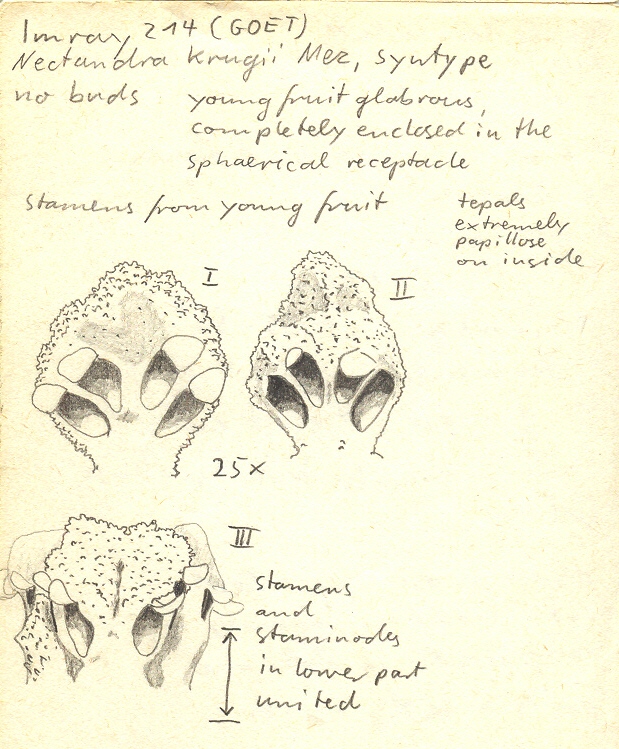 Imray, 214 (GOET)
Nectandra Krugii Mez, syntype
no buds
young fruit glabrous,
completely enclosed in the
sphaerical receptacle
stamens from young fruit
tepals
extremely
papillose
on inside
I
II
25x
III
stamens
and
staminodes
in lower part
united